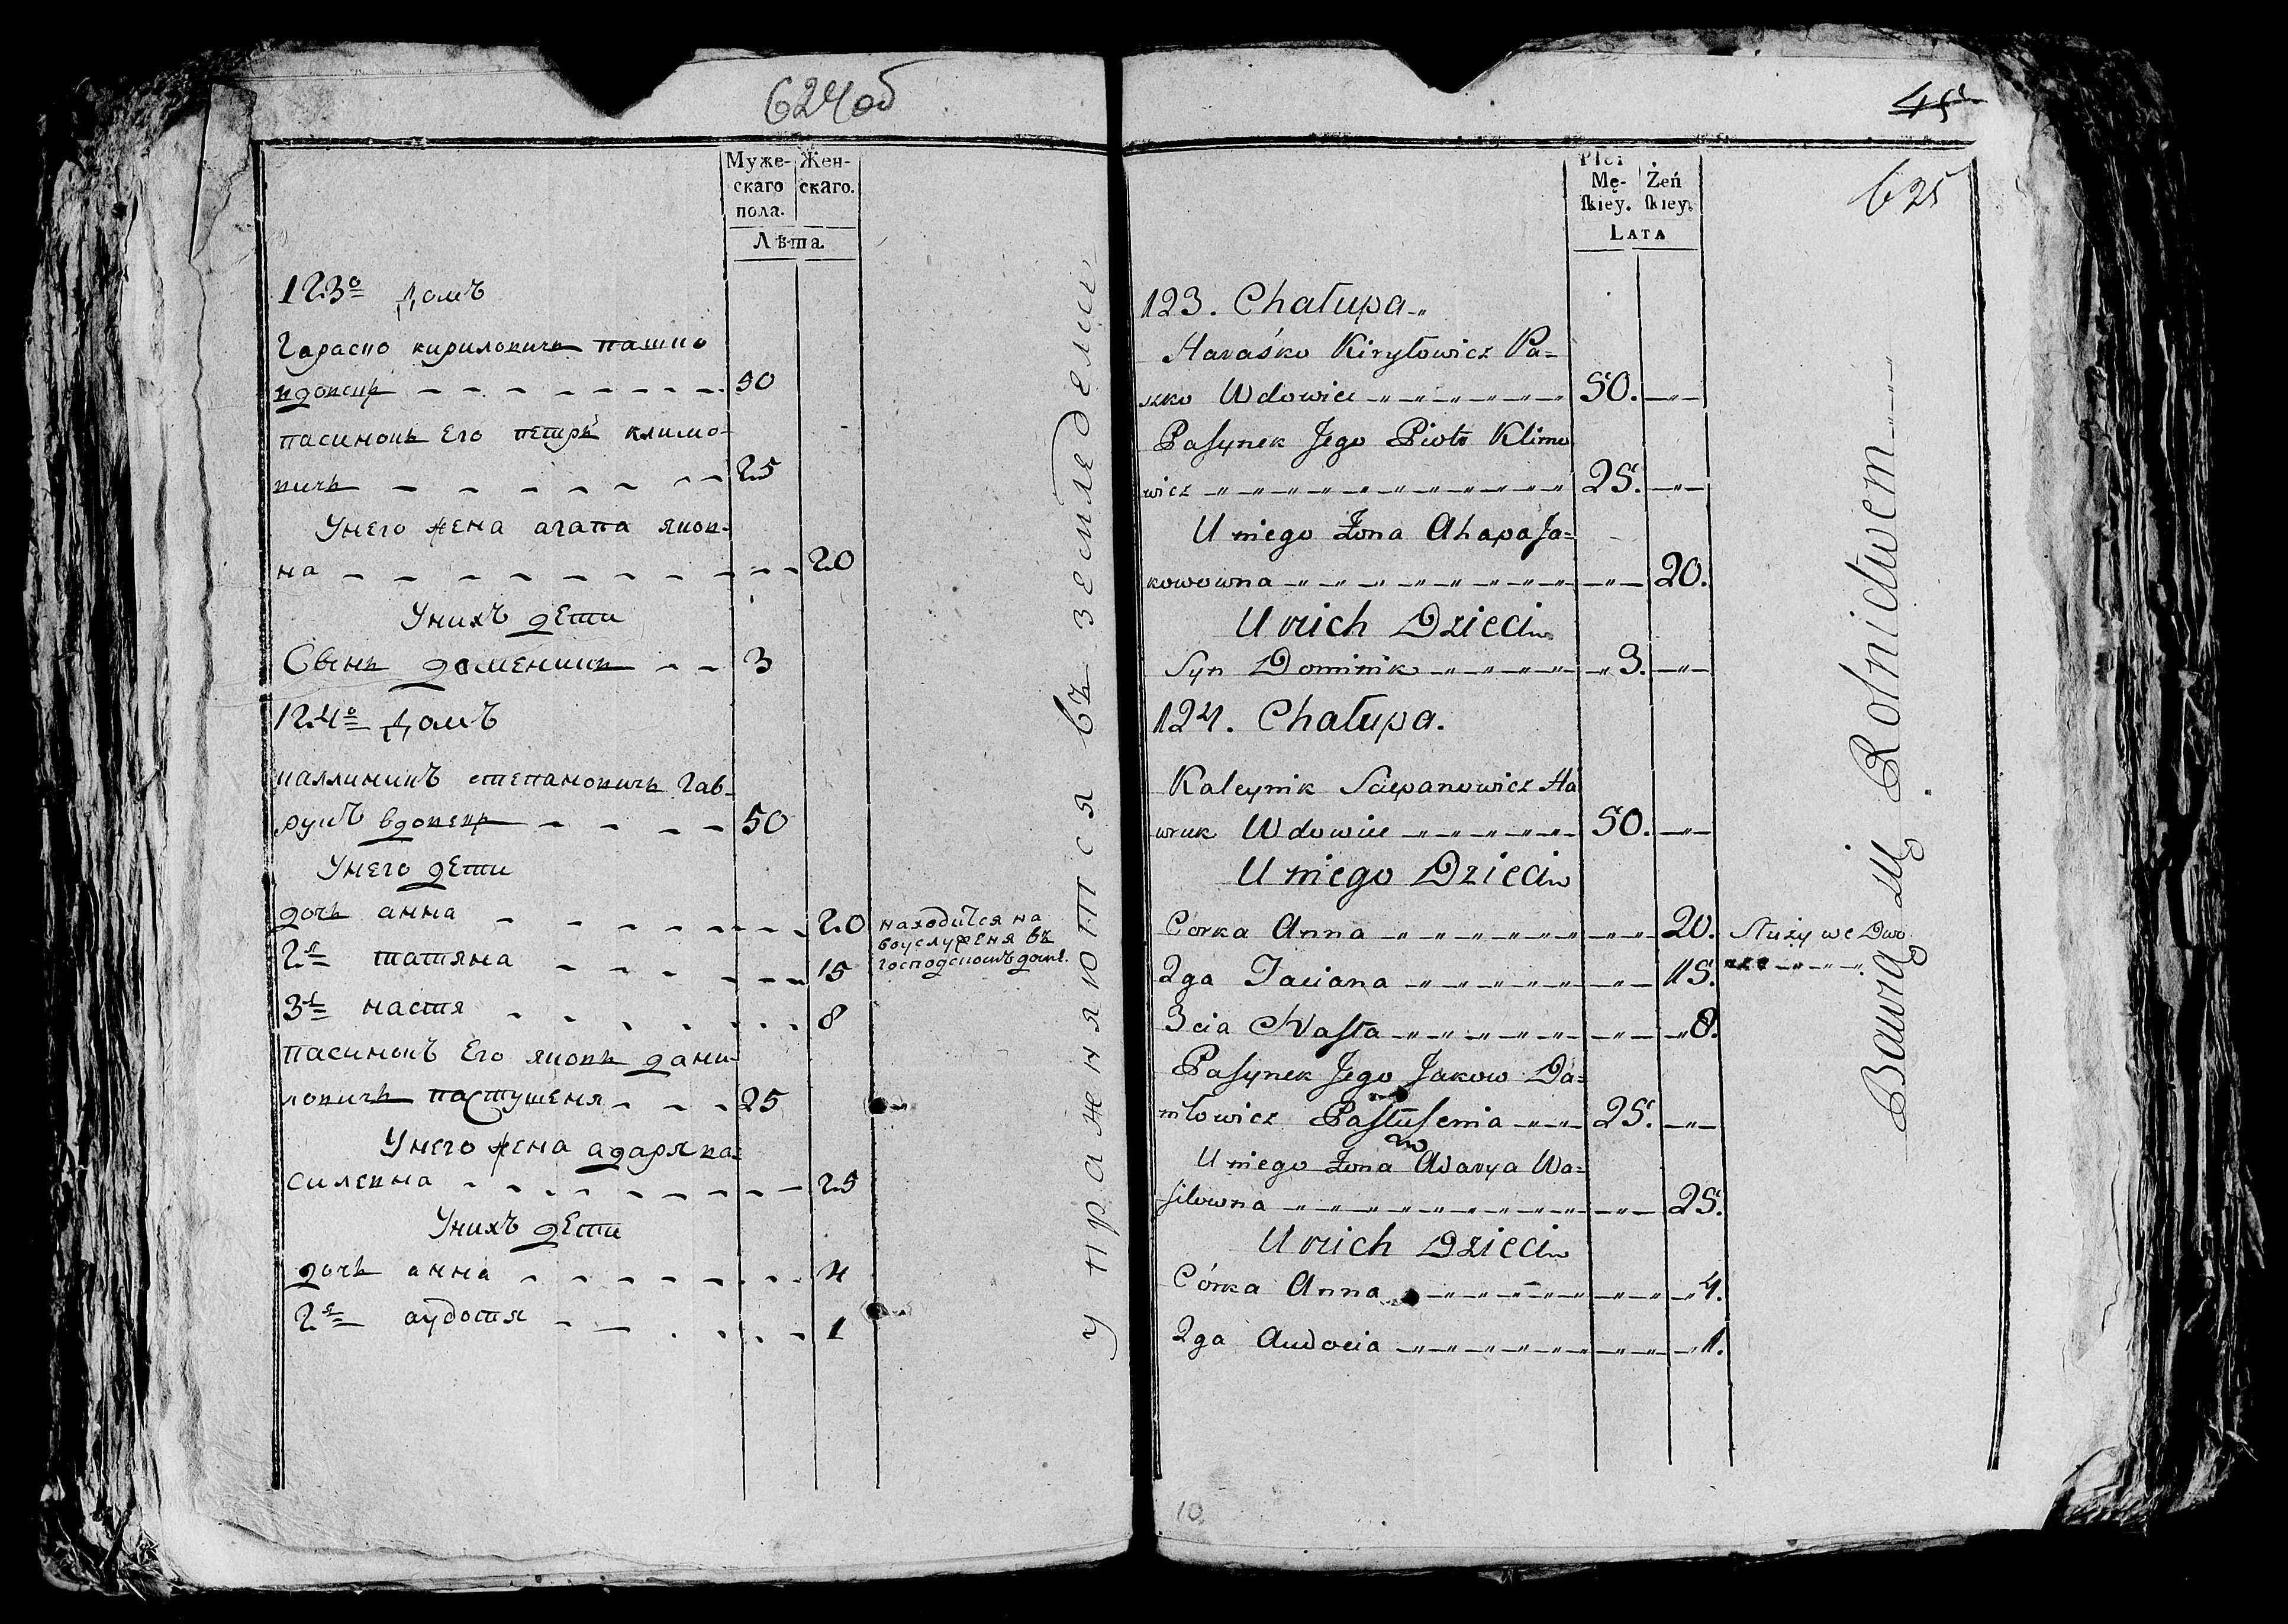 624об
Муже- Жен-
скаго скаго.
пола.
Лѣта.
123º Домъ
Гараско кириловичь пашко
вдовецъ 50
пасинокъ Его петръ климо-
вичь 25
Унего жена агапа яков-
на 20
Унихъ дети
Сынъ доменикъ 3
124º Домъ
каллиникъ степановичь Гав-
рукъ вдовецъ 50
Унего дети
дочь анна 20 находится на
воуслуженя въ
2я татяна 15 господскомъ доме.
3я настя 8
пасинокъ Его яковъ дани-
ловичь пастушеня 25
Унего жена адаря ва-
силевна 25
Унихъ дети
дочь анна 4
2я аудотя 1
упражняются въ земледелию
45
625
Płci
Mę- Żeń
ſkiey. ſkiey.
LATA
123. Chałupa.
Haraśko Kiryłowicz Pa=
szko Wdowiec 50.
Paſynek Jego Piotr Klimo
wicz 25.
U niego Żona Ahapa Ja=
kowowna 20.
U nich Dzieci
Syn Dominik 3.
124. Chałupa.
Kaleynik Sciepanowicz Ha
wruk Wdowiec 50.
U niego Dzieci
Córka Anna 20. Służy we Dwo
2ga Taciana 15.
3cia Naſta 8.
Paſynek Jego Jakow Da=
niłowicz Paſtuſenia 25.
U niego Żona Adarya Wa=
ſilowna 25.
U nich Dzieci
Córka Anna 4.
2ga Audocia 1.
Bawią się Rolnictwem
10.